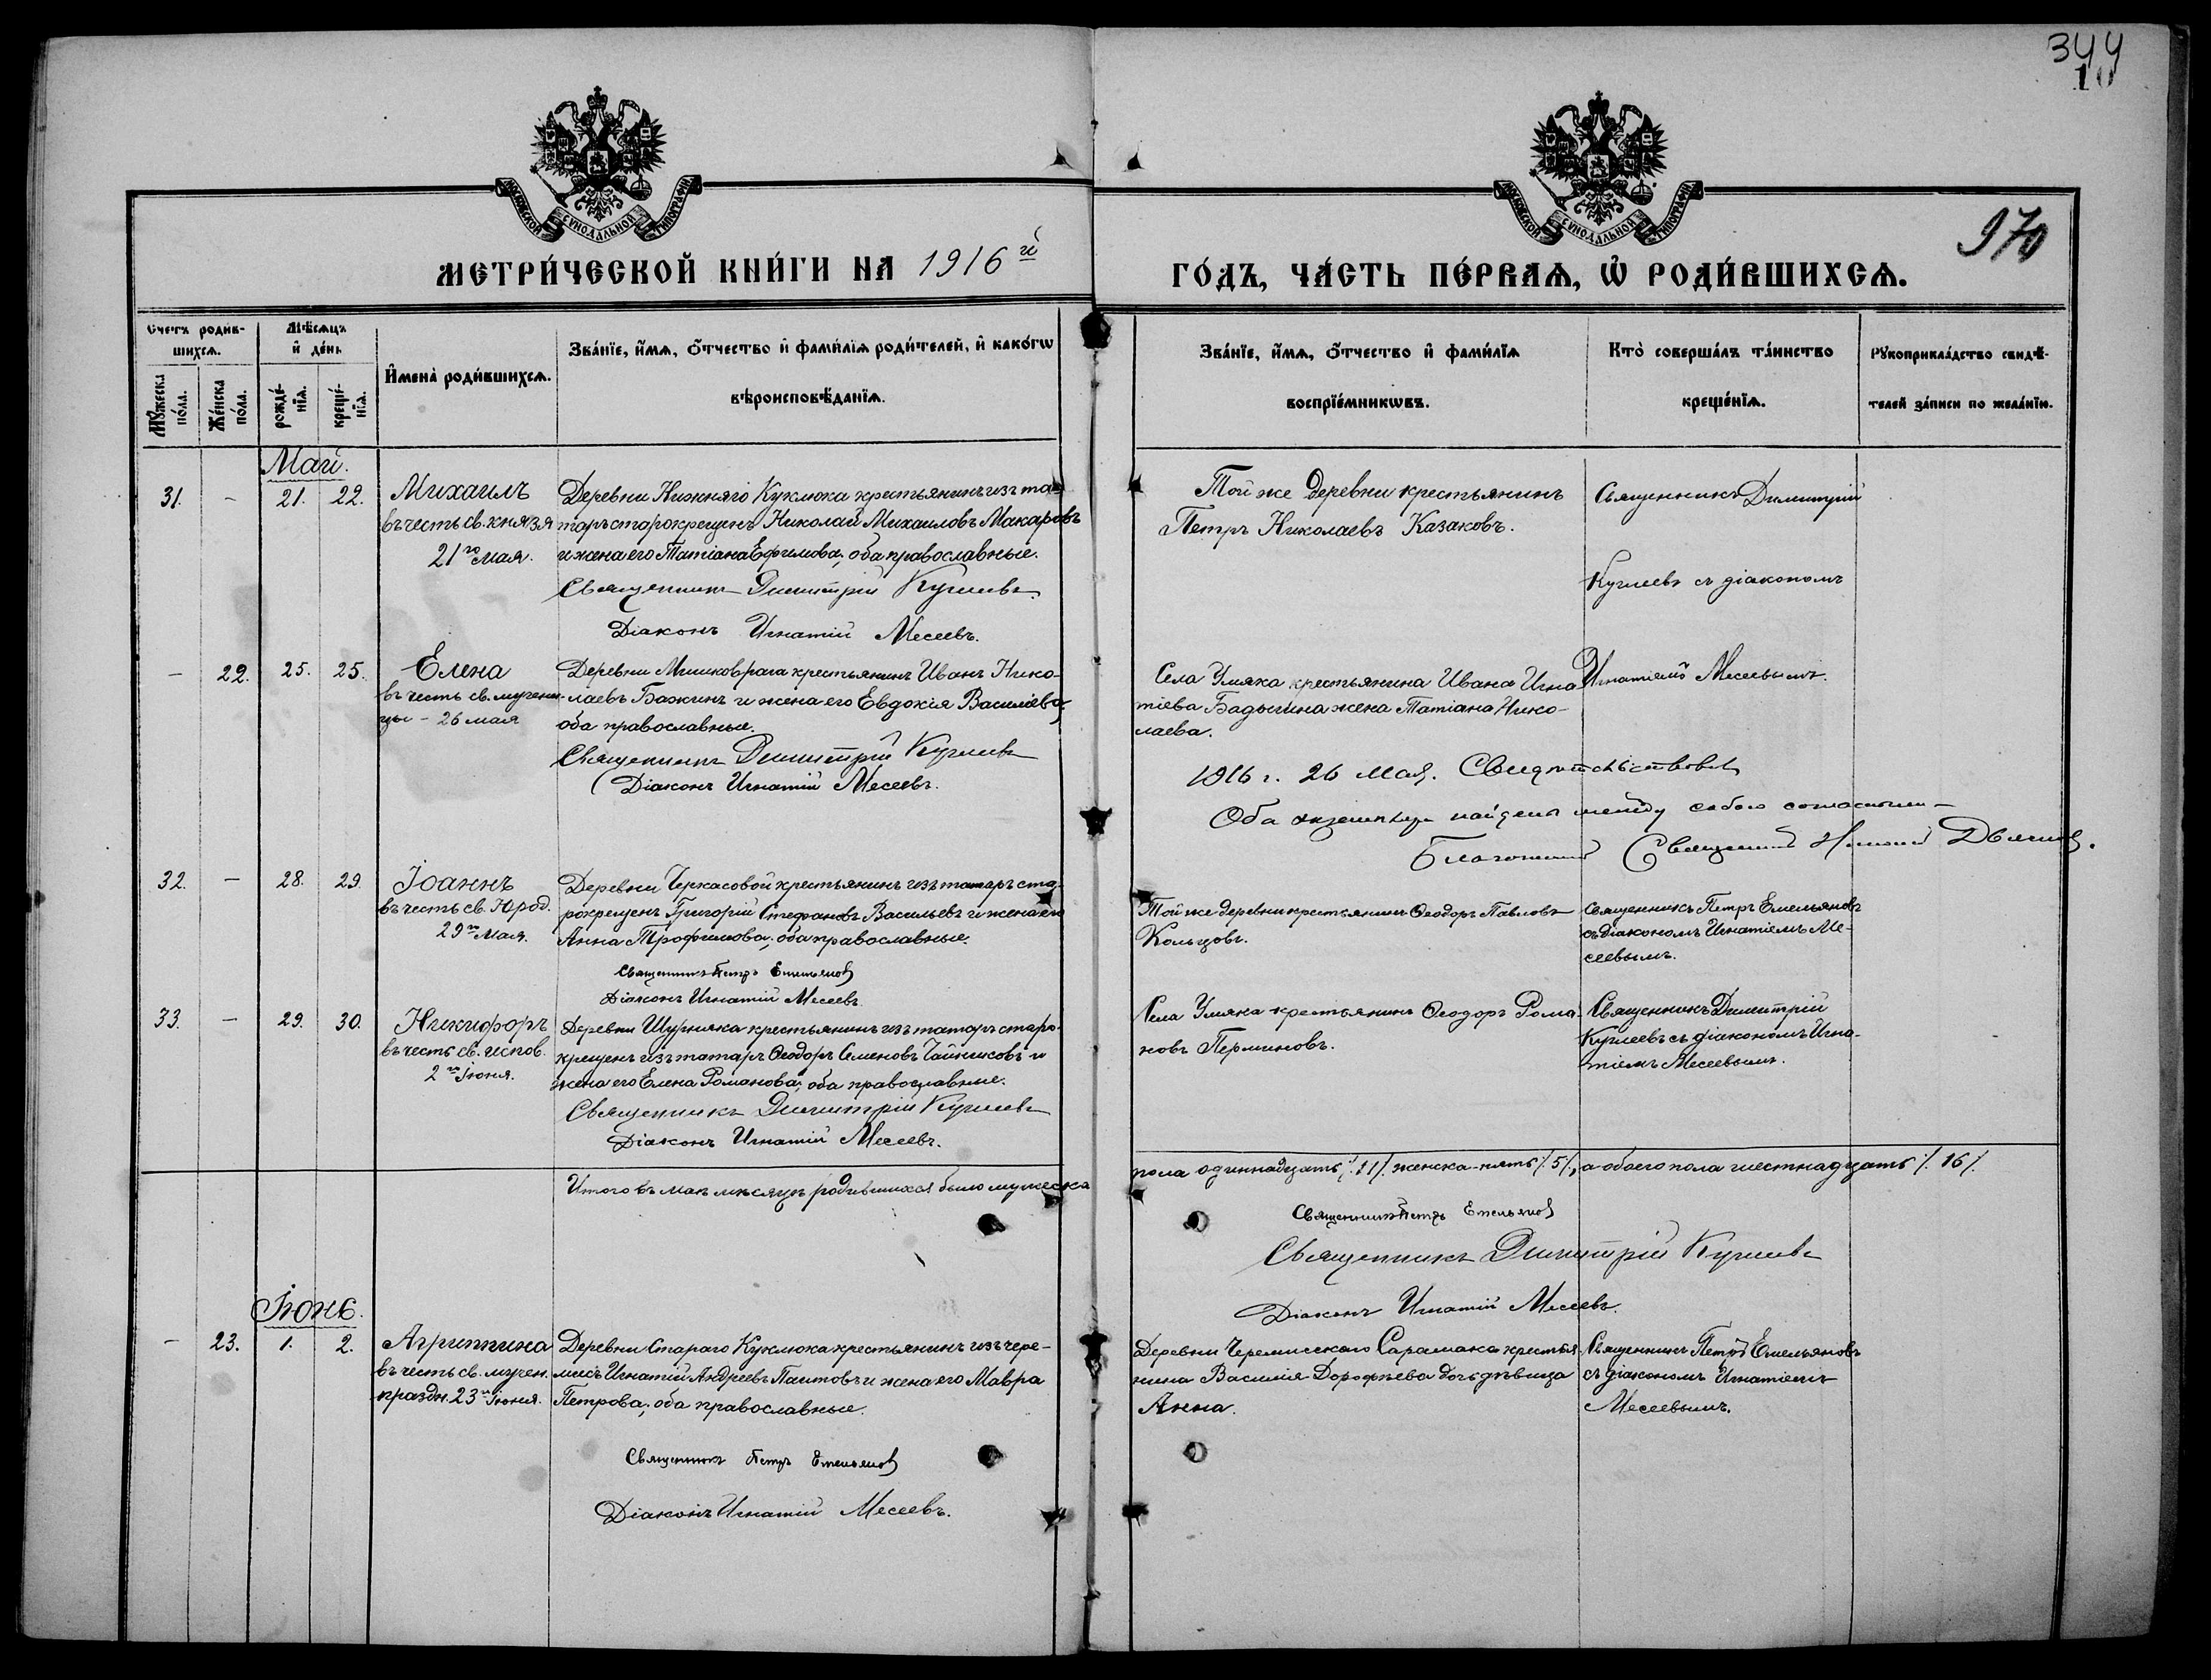 344
10
970
МОСКОВСКОЙ СѴНОДАЛЬНОЙ ТИПОГРАФІИ
МОСКОВСКОЙ СѴНОДАЛЬНОЙ ТИПОГРАФІИ
МЕТРИ́ЧЕСКОЙ КНИ́ГИ НА 1916й
ГО́ДЪ, ЧА́СТЬ ПЕ́РВАѦ, Ѡ҆ РОДИ́ВШИХСѦ.
Счетъ роди́в-
шихсѧ.
Мꙋ́жеска
по́ла.
Же́нска
по́ла.
Мѣ́сѧцъ
и҆ де́нь
рожде́-
нїѧ.
креще́-
нїѧ.
И҆мена̀ роди́вшихсѧ.
Зва́нїе, и҆́мѧ, ѻ҆́тчество и҆ фами́лїѧ роди́телей, и҆ како́гѡ
вѣроисповѣ́данїѧ.
Зва́нїе, и҆́мѧ, ѻ҆́тчество и҆ фами́лїѧ
воспрїе́мникѡвъ.
Кто̀ соверша́лъ та́инство
креще́нїѧ.
Рꙋкоприкла́дство свидѣ́-
телей за́писи по жела́нїю.
Май.
31. - 21. 22. Михаилъ
въ честь св. князя
21го мая.
Деревни Нижняго Куклюка крестьянинъ изъ та-
таръ старокрещенъ Николай Михаиловъ Макаровъ
и жена его Татіана Ефимова, оба православные.
Священникъ Димитрій Куглеевъ
Діаконъ Игнатій Месеевъ.
Той же деревни крестьянинъ
Петръ Николаевъ Казаковъ.
Священникъ Димитрій
Куглеевъ съ діакономъ
Игнатіемъ Месеевымъ.
- 22. 25. 25. Елена
въ честь св. мучени-
цы - 26 мая
Деревни крестьянинъ Иванъ Нико-
лаевъ Бажинъ и жена его Евдокія Василіева,
оба православные.
Священникъ Димитрій Куглеевъ
Діаконъ Игнатій Месеевъ.
Села Умяка крестьянина Ивана Игна-
тіева Бадыгина жена Татіана Нико-
лаева.
1916 г. 26 мая. Свидѣтельствовалъ
Оба экземпляра найдены между собою согласными -
Благочинный Священникъ
32. - 28. 29. Іоаннъ
въ честь св. Юрод.
29го Мая.
Деревни Черкасовой крестьянинъ изъ татаръ ста-
рокрещенъ Григорій Стефановъ Васильевъ и жена его
Анна Трофимова, оба православные.
Священникъ Петръ Емельяновъ
Діаконъ Игнатій Месеевъ
Той же деревни крестьянинъ Ѳеодоръ Павловъ
Кольцовъ.
Священникъ Петръ Емельяновъ
съ діакономъ Игнатіемъ Ме-
сеевымъ.
33. - 29. 30. Никифоръ
въ честь св. испов.
2го Іюня.
Деревни Шурняка крестьянинъ изъ татаръ старо-
крещенъ изъ татаръ Ѳеодоръ Семеновъ и
жена его Елена Романова, оба православные.
Священникъ Димитрій Куглеевъ
Діаконъ Игнатій Месеевъ.
Села Умяка крестьянинъ Ѳеодоръ Рома-
новъ Перминовъ.
Священникъ Димитрій
Куглеевъ съ діакономъ Игна-
тіемъ Месеевымъ.
Итого въ маѣ мѣсяцѣ родившихся было мужеска
пола одиннадцать /. 11 /. женска - пять /. 5 /., а обоего пола шестнадцать /. 16 /.
Священникъ Петръ Емельяновъ
Священникъ Димитрій Куглеевъ
Діаконъ Игнатій Месеевъ.
Іюнь.
- 23. 1. 2. Агриппина
въ честь св. мучен.
праздн. 23го Іюня.
Деревни Стараго Куклюка крестьянинъ изъ чере-
мисъ Игнатій Андреевъ Паитовъ и жена его Мавра
Петрова, оба православные.
Священникъ Петръ Емельяновъ
Діаконъ Игнатій Месеевъ.
Деревни Черемисскаго Сарамака крестья-
нина Василія Дорофѣева дочь дѣвица
Анна.
Священникъ Петръ Емельяновъ
съ діакономъ Игнатіемъ
Месеевымъ.